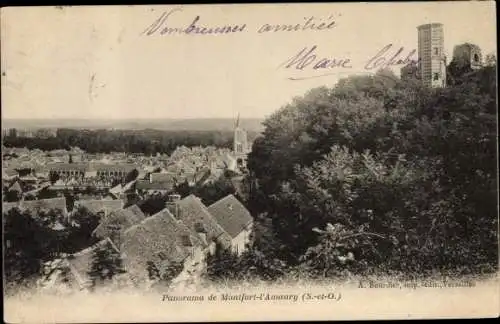 Nombreuses amitiés
Marie
A. Bourdier, imp.-édit., Versailles
Panorama de Montfort-l'Amaury (S.-et-O.)